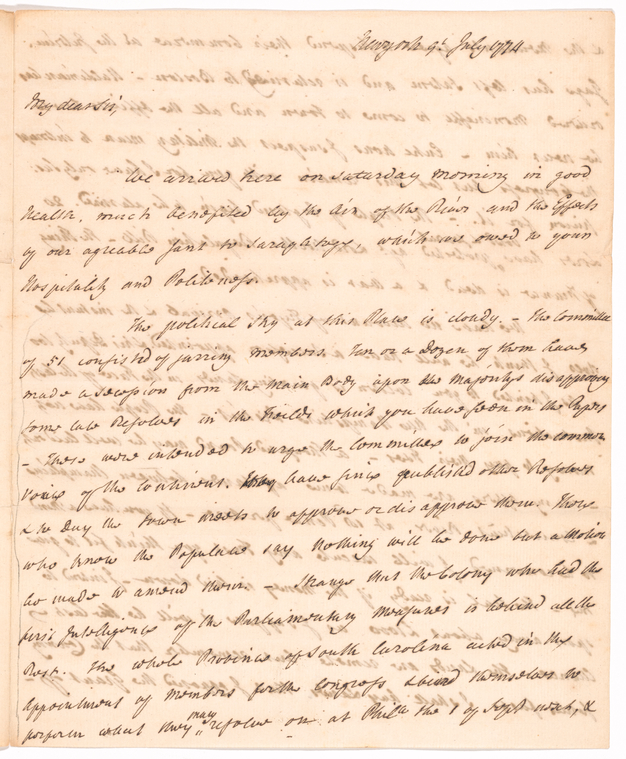 New york 9th July 1774
My dear Sir,
We arrived here on saturday morning in good
Health, much benefited by the Air of the River and the Effects
of our agreable Jant to Saraghtoga, which we owed to your
Hospitality and Politeness.
The political Sky at this Place is cloudy – the Committee
of 51 consisted of jarring members. Ten or a dozen of them have
made a secession from the Main Body upon the Majoritys disapproving
some late Resolves in the Feilds which you have seen in the Papers
– These were intended to urge the Committee to join the common
Voice of the Continent. They have since published other Resolves
& to day the Town meets to approve or disapprove them. Those
who know the Populace say Nothing will be done but a Motion
be made to amend them. – Strange that the Colony who had the
first Intelligence of the Parliamentary Measures is behind all the
Rest. The whole Province of South Carolina acted in the
Appointment of Members for the Congress & bound themselves to
may
perform what they resolve on at Phila the 1 of Sept next, &